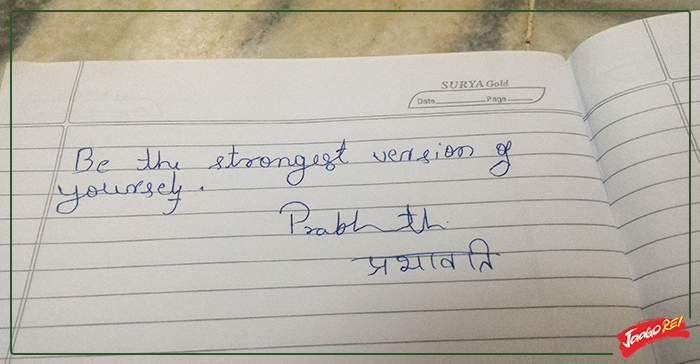 SURYA Gold
Date Page
Be the strongest version of
yourself.
प्रभावति
JAAGO RE!